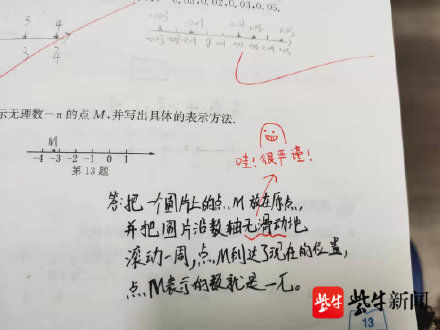 0.03,0.02,0.03,0.05.
3 4
3 4
示无理数-π的点M,并写出具体的表示方法.
M
-4 -3 -2 -1 0 1
第13题
哇!很严谨!
答:把一个圆片上的点M放在原点,
并把圆片沿数轴无滑动地
滚动一周,点M到达了现在的位置,
点M表示的数就是-π。
紫牛新闻
13